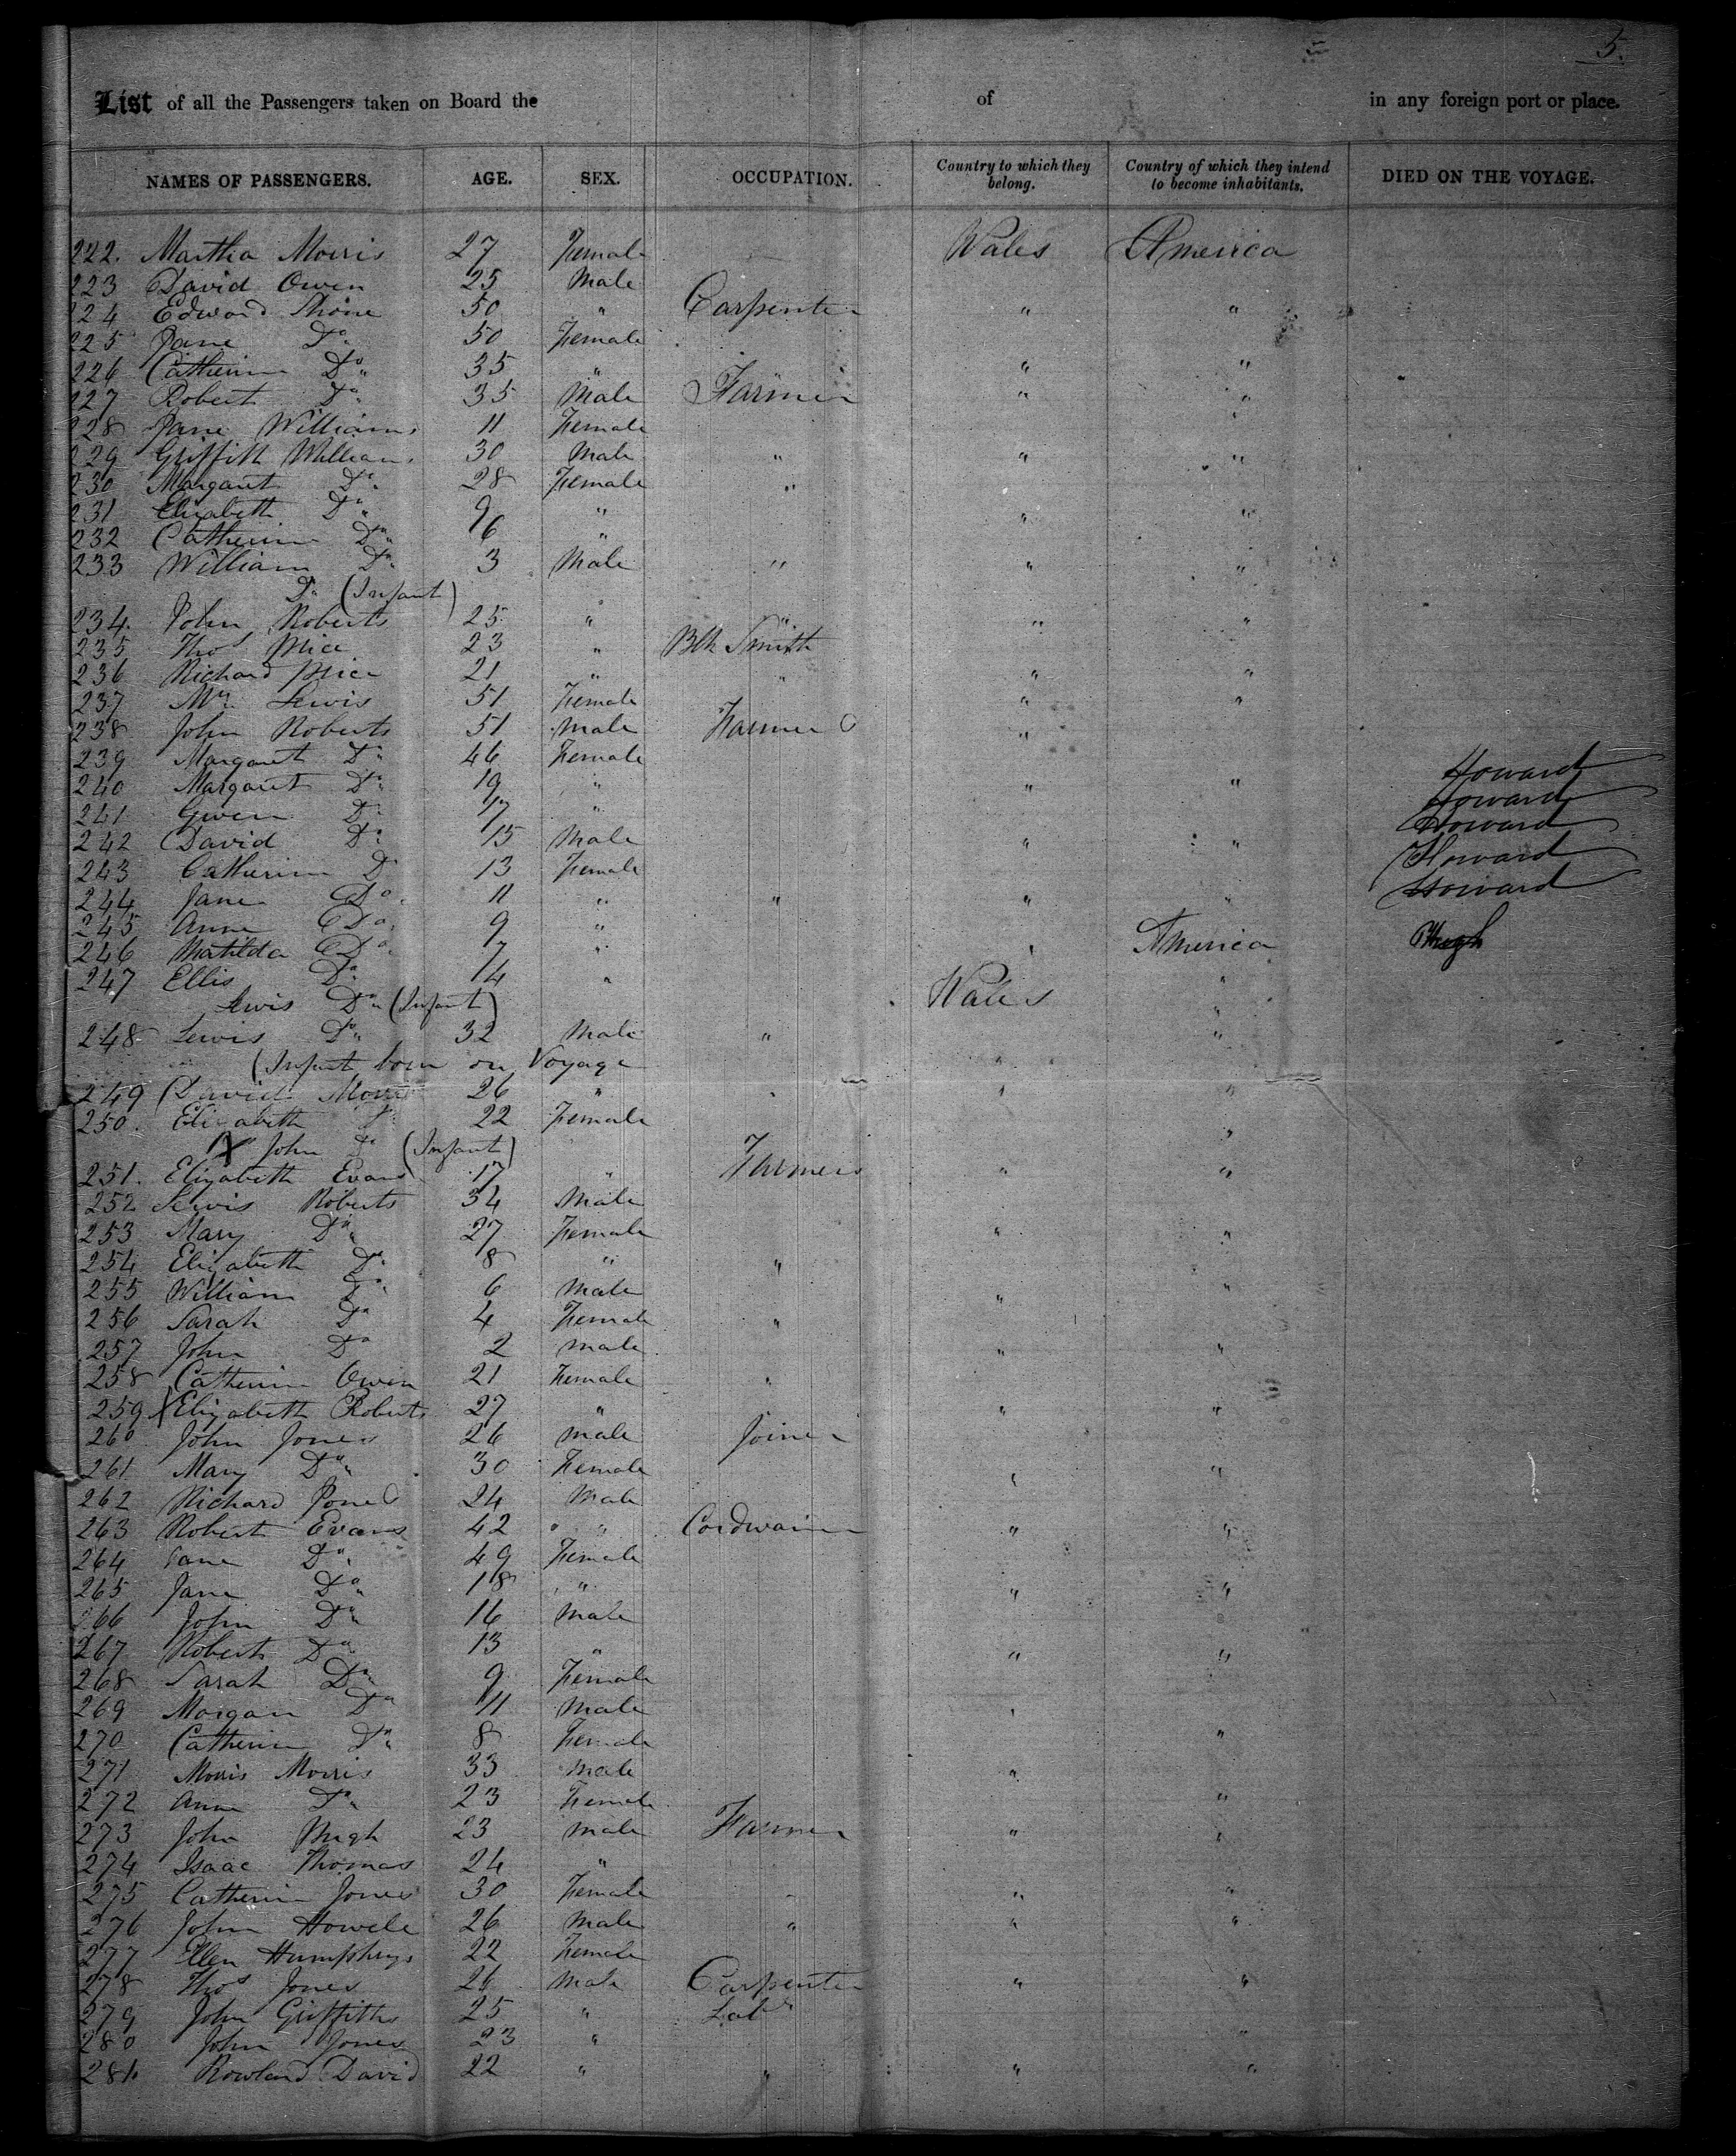 5.
List of all the Passengers taken on Board the of in any foreign port or place.
NAMES OF PASSENGERS. AGE. SEX. OCCUPATION. Country to which they belong. Country of which they intend to become inhabitants. DIED ON THE VOYAGE.
222. Martha Morris 27 Female Wales America
223 David Owen 25 Male
224 Edward Shone 50 " Carpenter " "
225 Jane Do 50 Female
226 Catherine Do 35 " " "
227 Robert Do 35 Male Farmer " "
228 Jane Williams 11 Female "
229 Griffith Williams 30 Male " " "
230 Margaret Do 28 Female "
231 Elizabeth Do 9 " " "
232 Catherine Do 6 "
233 William Do 3 Male " " "
Do (Infant)
234. John Roberts 25 " " " "
235 Thos Price 23 " Blk Smith
236 Richard Price 21 " " " "
237 Mrs Lewis 51 Female " "
238 John Roberts 51 Male Farmer "
239 Margaret Do 46 Female Howard
240 Margaret Do 19 " " " Howard
241 Gwen Do 17 " Howard
242 David Do 15 Male " " Howard
243 Catherine Do 13 Female Howard
244 Jane Do 11 " " " "
245 Anne Do 9 "
246 Matilda Do 7 " " America Hugh
247 Ellis Do 14 " "
Lewis Do (Infant) Wales "
248 Lewis Do 32 Male " "
(Infant born on Voyage "
249 David Morris 26 " " " "
250. Elizabeth Do 22 Female "
X John Do (Infant)
251. Elizabeth Evans 17 " Farmers " "
252 Lewis Roberts 34 Male
253 Mary Do 27 Female " "
254 Elizabeth Do 8 " "
255 William Do 6 Male " "
256 Sarah Do 4 Female "
257 John Do 2 Male " "
258 Catherine Owen 21 Female "
259 X Elizabeth Roberts 27 " " "
260 John Jones 26 Male Joiner
261 Mary Do 30 Female " "
262 Richard Jones 24 Male
263 Robert Evans 42 " Cordwainer " "
264 Jane Do 49 Female
265 Jane Do 18 " " "
266 John Do 16 Male
267 Robert Do 13 " " "
268 Sarah Do 9 Female
269 Morgan Do 11 Male "
270 Catherine Do 8 Female "
271 Morris Morris 33 Male "
272 Anne Do 23 Female "
273 John Pugh 23 Male Farmer " "
274 Isaac Thomas 24 "
275 Catherine Jones 30 Female " " "
276 John Howell 26 Male " " "
277 Ellen Humphreys 22 Female
278 Thos Jones 26 Male Carpenter " "
279 John Griffiths 25 " Labr
280 John Jones 23 " "
281. Rowland David 22 " " " "